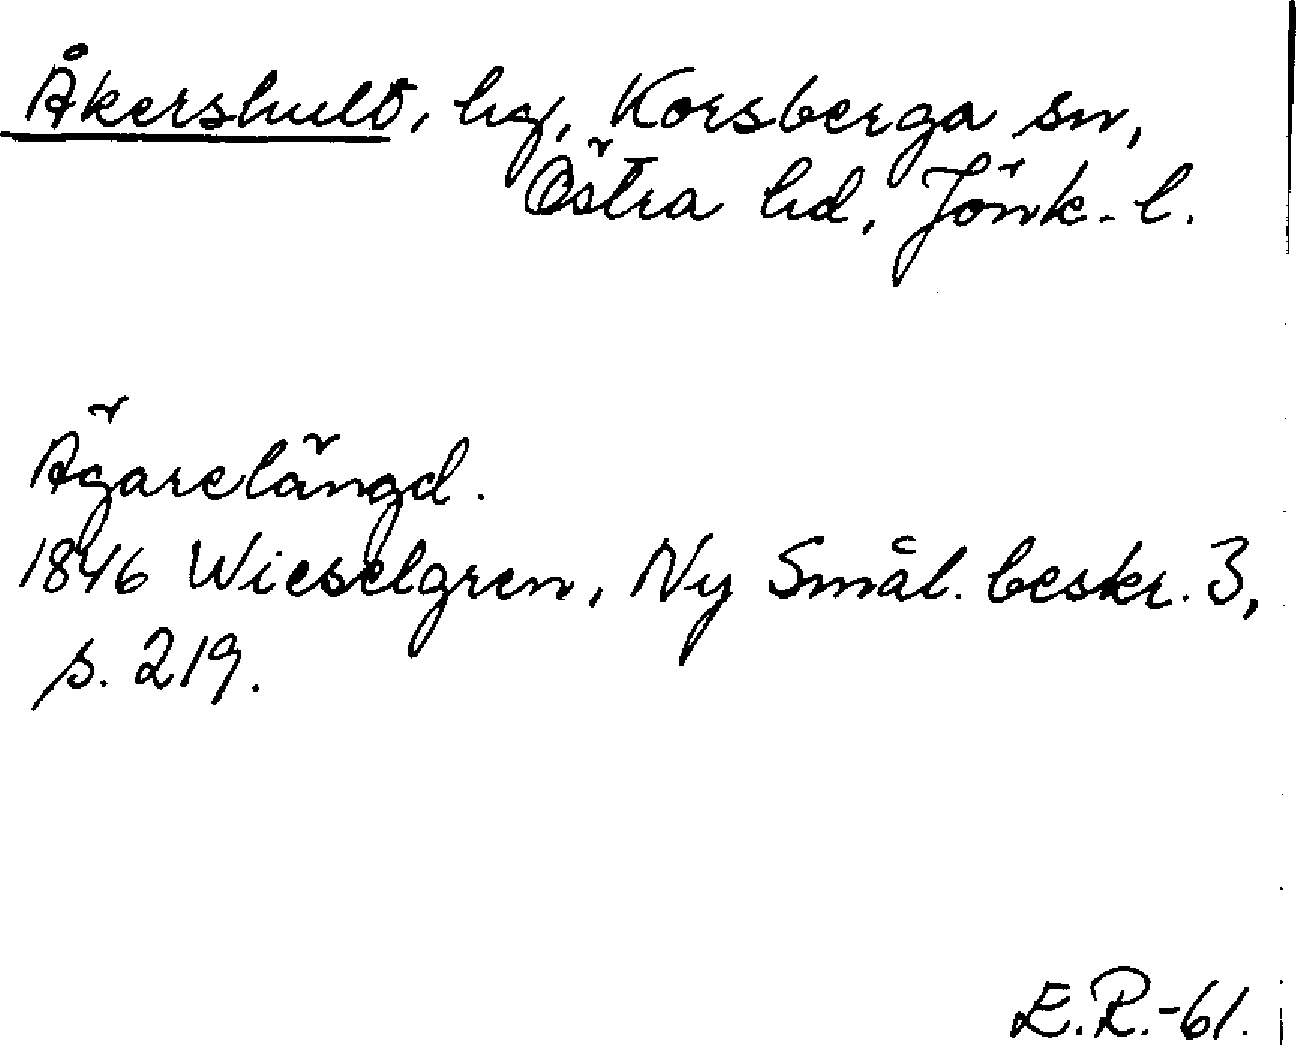 Åkershult, hg, Korsberga sn,
Östra hd, Jönk. l.
Ägarelängd.
1846 Wieselgren, Ny Smål. beskr. 3,
s. 219.
E.R.-61.